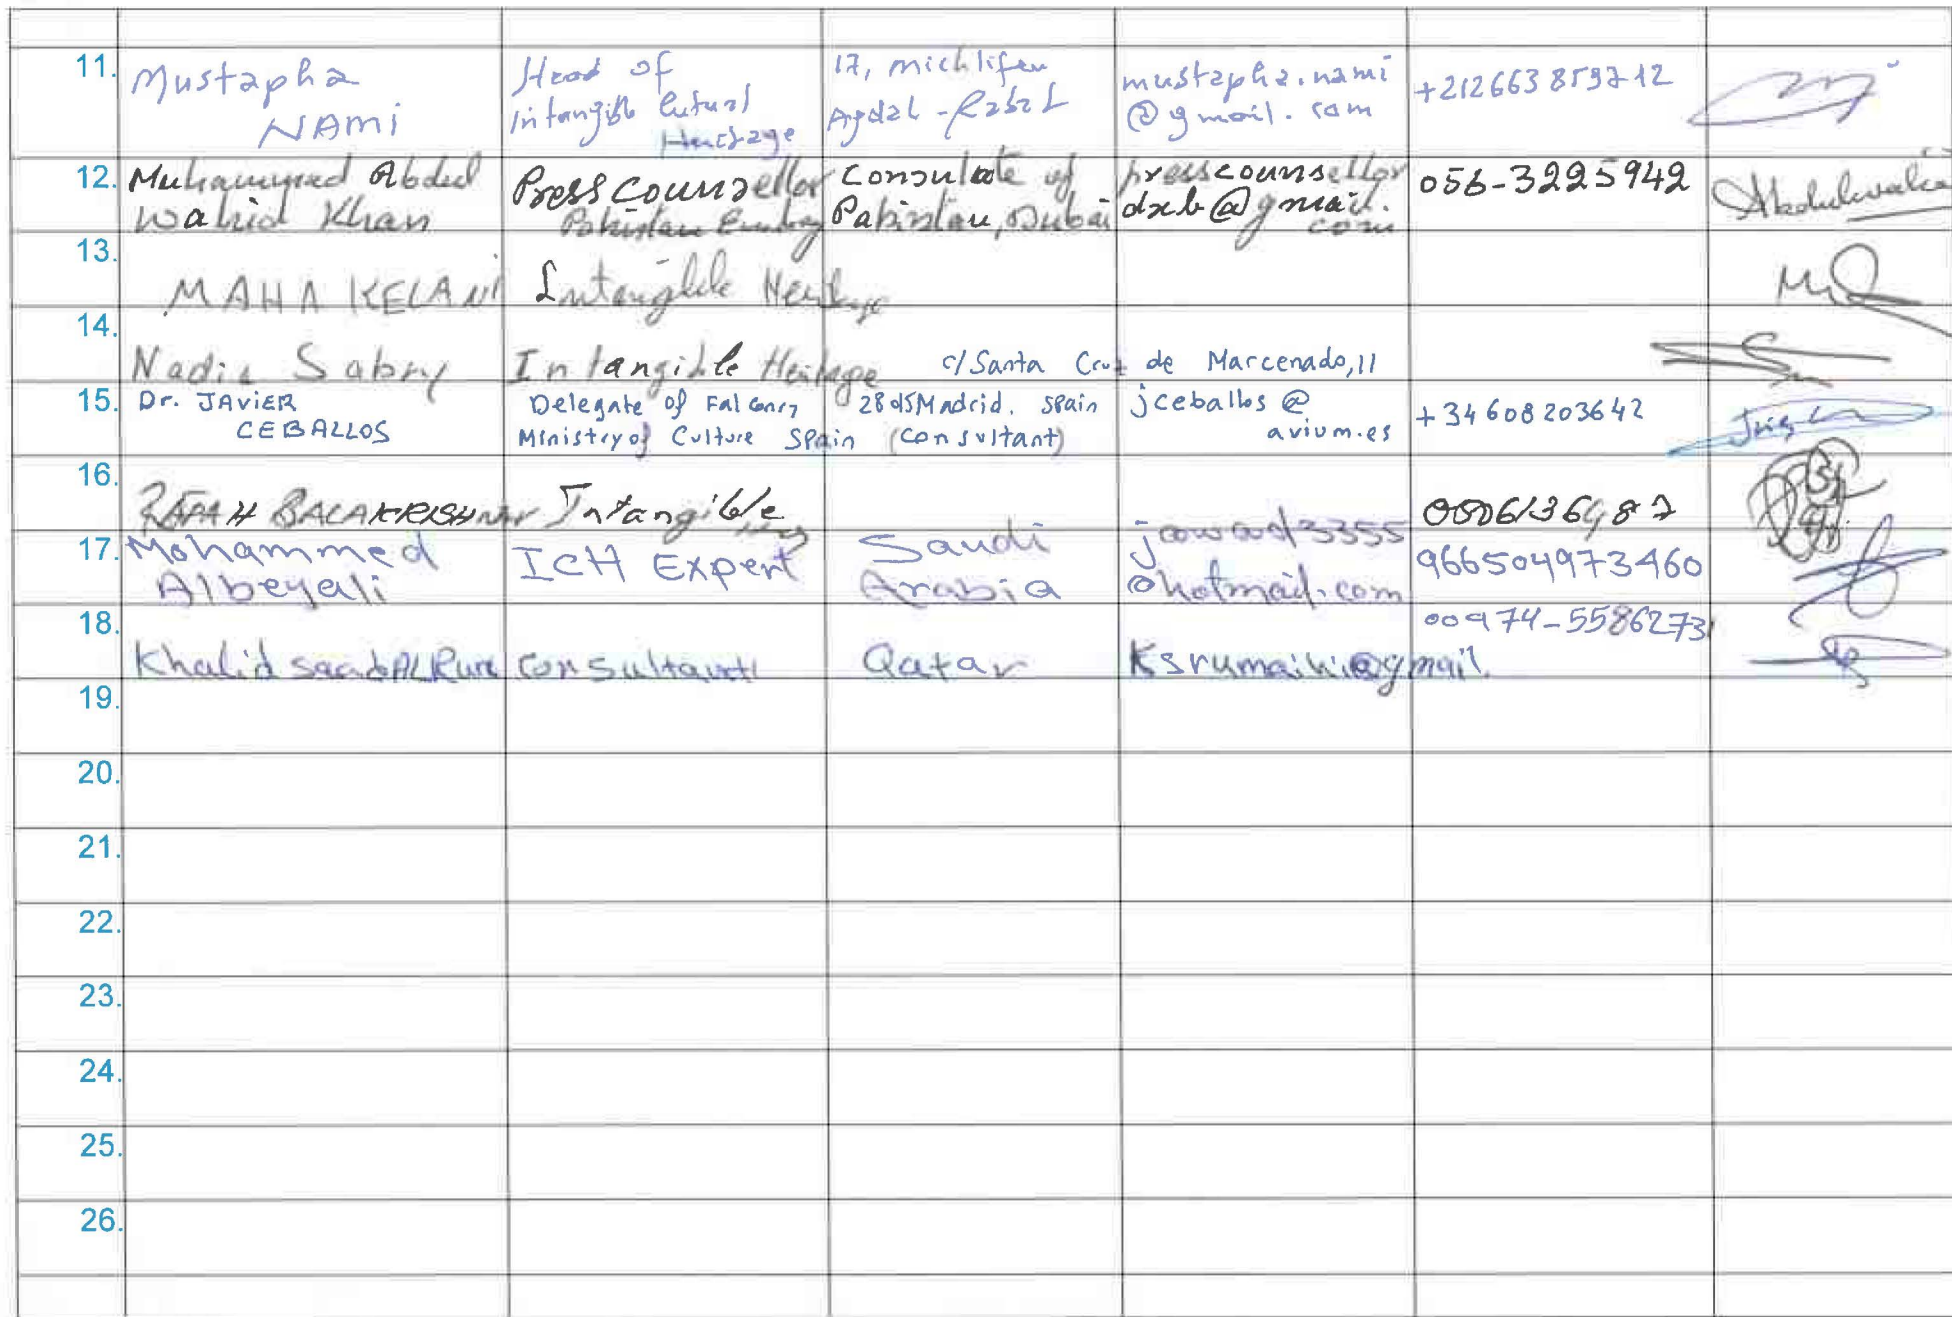 11. Mustapha NAMi Head of intangible Cultural Heritage 17, michlifen Agdal - Rabat mustapha.nami @gmail.com
12. Muhammad Abdul Wahid Khan Press Counsellor Pakistan Embassy Consulate of Pakistan, Dubai presscounsellor dxb@gmail.com 056-3225942
13. MAHA KELANI Intangible Heritage
14. Nadia Sabry Intangible Heritage
c/Santa Cruz de Marcenado, 11
15. Dr. JAVIER CEBALLOS Delegate of Falconry Ministry of Culture Spain 28015 Madrid. Spain (consultant) jceballos@avium.es +34608203642
16. BALAKRISHNAN Intangible
17. Mohammed Albeyali ICH Expert Saudi Arabia jawad3355 @hotmail.com 966504973460
18. Khalid saad consultant Qatar Ksrumaihi@gmail. 00974-55862731
19.
20.
21.
22.
23.
24.
25.
26.